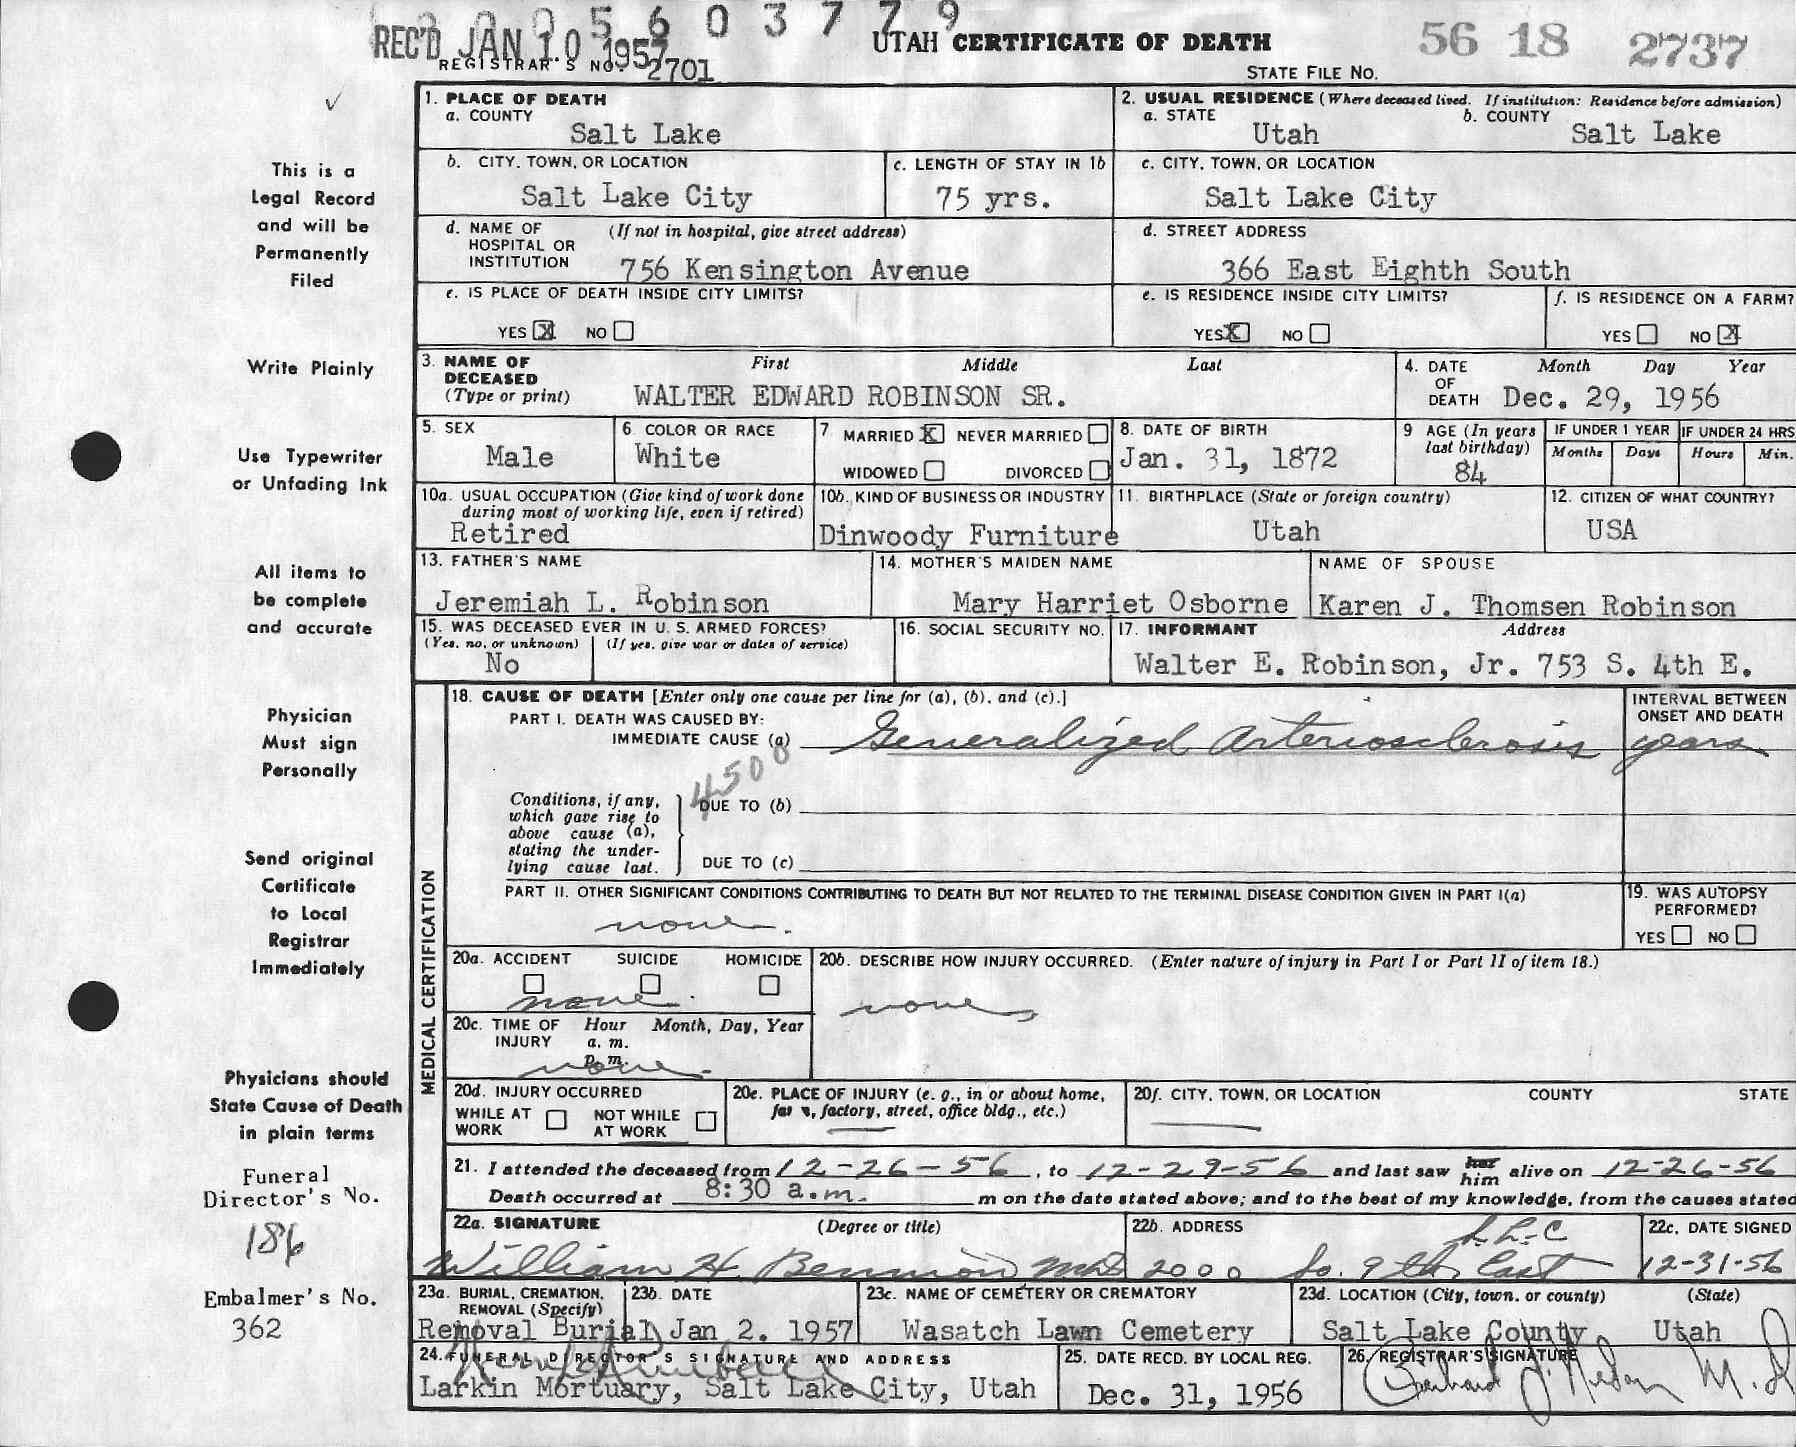 0 0 5 6 0 3 7 7 9
REC'D JAN 10 1957
UTAH CERTIFICATE OF DEATH
56 18 2737
REGISTRAR'S NO. 2701
STATE FILE NO.
✓
This is a
Legal Record
and will be
Permanently
Filed
Write Plainly
Use Typewriter
or Unfading Ink
All items to
be complete
and accurate
Physician
Must sign
Personally
Send original
Certificate
to Local
Registrar
Immediately
Physicians should
State Cause of Death
in plain terms
Funeral
Director's No.
186
Embalmer's No.
362
1. PLACE OF DEATH
a. COUNTY
Salt Lake
2. USUAL RESIDENCE (Where deceased lived. If institution: Residence before admission)
a. STATE
Utah
b. COUNTY
Salt Lake
b. CITY, TOWN, OR LOCATION
Salt Lake City
c. LENGTH OF STAY IN 1b
75 yrs.
c. CITY, TOWN, OR LOCATION
Salt Lake City
d. NAME OF (If not in hospital, give street address)
HOSPITAL OR
INSTITUTION 756 Kensington Avenue
d. STREET ADDRESS
366 East Eighth South
e. IS PLACE OF DEATH INSIDE CITY LIMITS?
YES X NO
e. IS RESIDENCE INSIDE CITY LIMITS?
YES X NO
f. IS RESIDENCE ON A FARM?
YES NO X
3. NAME OF First Middle Last
DECEASED
(Type or print) WALTER EDWARD ROBINSON SR.
4. DATE Month Day Year
OF
DEATH Dec. 29, 1956
5. SEX
Male
6 COLOR OR RACE
White
7 MARRIED X NEVER MARRIED
WIDOWED DIVORCED
8. DATE OF BIRTH
Jan. 31, 1872
9 AGE (In years
last birthday)
84
IF UNDER 1 YEAR
Months Days
IF UNDER 24 HRS
Hours Min.
10a. USUAL OCCUPATION (Give kind of work done
during most of working life, even if retired)
Retired
10b. KIND OF BUSINESS OR INDUSTRY
Dinwoody Furniture
11. BIRTHPLACE (State or foreign country)
Utah
12. CITIZEN OF WHAT COUNTRY?
USA
13. FATHER'S NAME
Jeremiah L. Robinson
14. MOTHER'S MAIDEN NAME
Mary Harriet Osborne
NAME OF SPOUSE
Karen J. Thomsen Robinson
15. WAS DECEASED EVER IN U. S. ARMED FORCES?
(Yes, no, or unknown) (If yes, give war or dates of service)
No
16. SOCIAL SECURITY NO.
17. INFORMANT Address
Walter E. Robinson, Jr. 753 S. 4th E.
MEDICAL CERTIFICATION
18. CAUSE OF DEATH [Enter only one cause per line for (a), (b), and (c).]
PART I. DEATH WAS CAUSED BY:
IMMEDIATE CAUSE (a) Generalized Arteriosclerosis
INTERVAL BETWEEN
ONSET AND DEATH
years
4500
Conditions, if any,
which gave rise to
above cause (a),
stating the under-
lying cause last.
DUE TO (b)
DUE TO (c)
PART II. OTHER SIGNIFICANT CONDITIONS CONTRIBUTING TO DEATH BUT NOT RELATED TO THE TERMINAL DISEASE CONDITION GIVEN IN PART I(a)
none.
19. WAS AUTOPSY
PERFORMED?
YES NO
20a. ACCIDENT SUICIDE HOMICIDE
none.
20b. DESCRIBE HOW INJURY OCCURRED. (Enter nature of injury in Part I or Part II of item 18.)
none
20c. TIME OF Hour Month, Day, Year
INJURY a. m.
p. m.
none.
20d. INJURY OCCURRED
WHILE AT NOT WHILE
WORK AT WORK
20e. PLACE OF INJURY (e. g., in or about home,
farm, factory, street, office bldg., etc.)
20f. CITY, TOWN, OR LOCATION COUNTY STATE
21. I attended the deceased from 12-26-56, to 12-29-56 and last saw her him alive on 12-26-56
Death occurred at 8:30 a.m. m on the date stated above; and to the best of my knowledge, from the causes stated
22a. SIGNATURE (Degree or title)
William H. Bennion MD
22b. ADDRESS
S.L.C
2000 So. 9th East
22c. DATE SIGNED
12-31-56
23a. BURIAL, CREMATION,
REMOVAL (Specify)
Removal Burial
23b. DATE
Jan 2. 1957
23c. NAME OF CEMETERY OR CREMATORY
Wasatch Lawn Cemetery
23d. LOCATION (City, town, or county) (State)
Salt Lake County Utah
24. FUNERAL DIRECTOR'S SIGNATURE AND ADDRESS
Larkin Mortuary, Salt Lake City, Utah
25. DATE RECD. BY LOCAL REG.
Dec. 31, 1956
26. REGISTRAR'S SIGNATURE
M.D